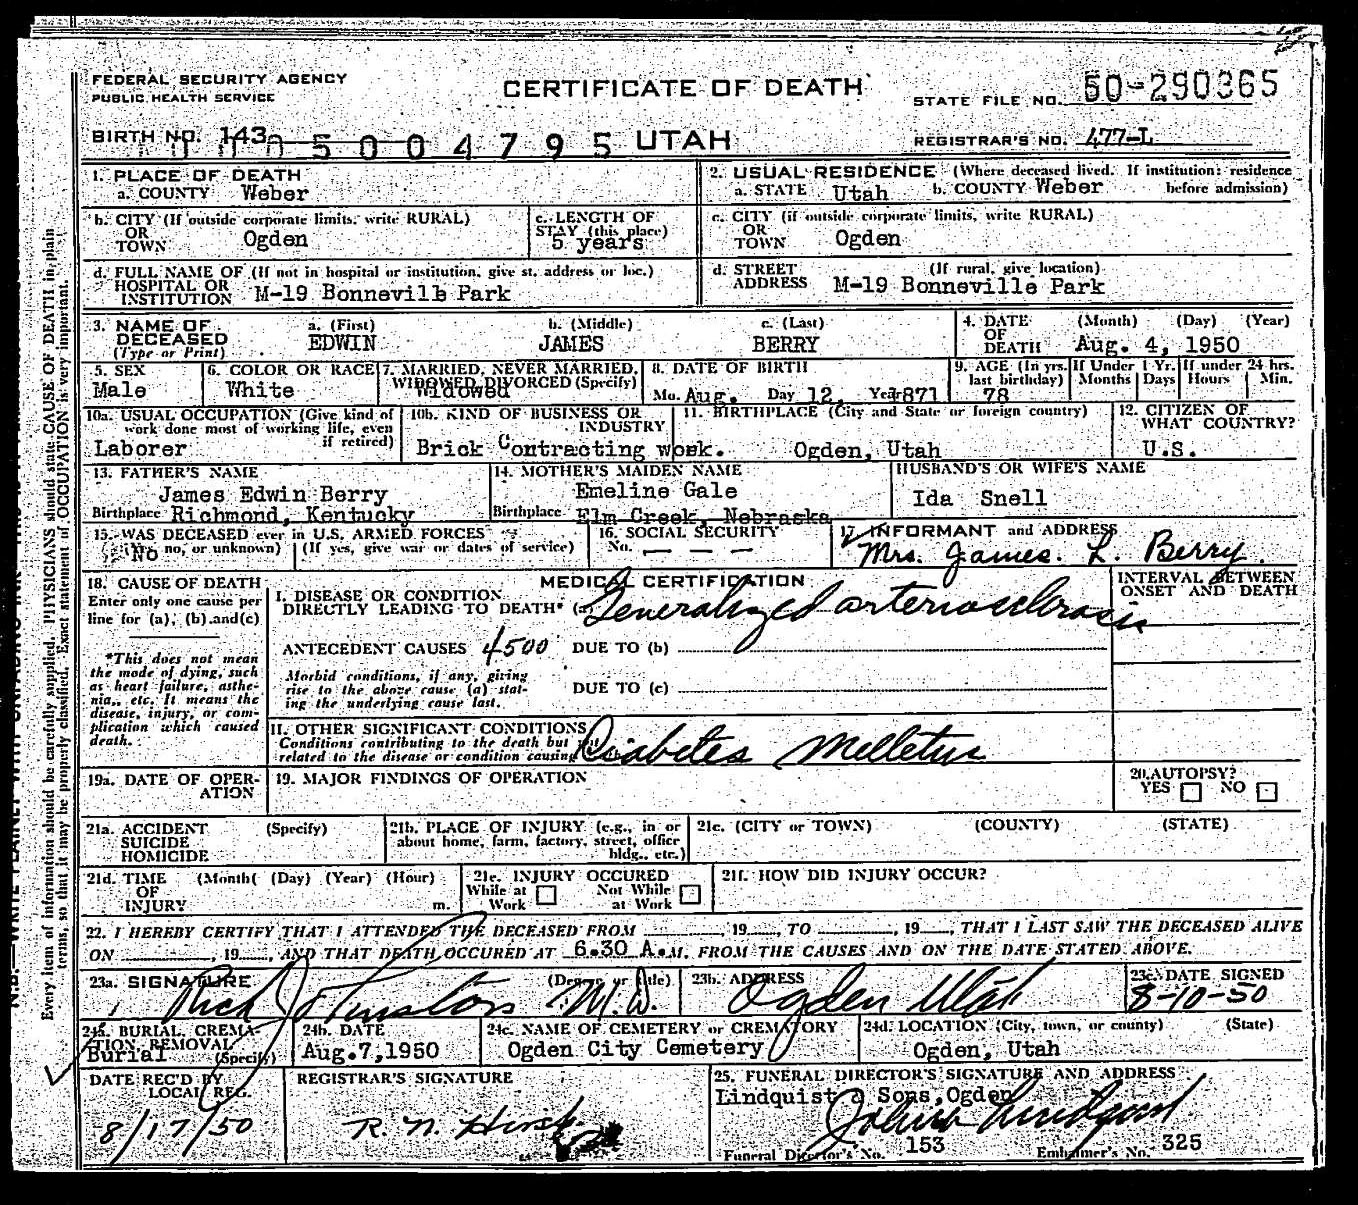 FEDERAL SECURITY AGENCY
PUBLIC HEALTH SERVICE
CERTIFICATE OF DEATH
STATE FILE NO. 50-290365
BIRTH NO. 143
5004795 UTAH
REGISTRAR'S NO. 477-L
1. PLACE OF DEATH
a. COUNTY Weber
2. USUAL RESIDENCE (Where deceased lived. If institution: residence before admission)
a. STATE Utah b. COUNTY Weber
b. CITY (If outside corporate limits, write RURAL)
OR
TOWN Ogden
c. LENGTH OF
STAY (this place)
5 years
c. CITY (if outside corporate limits, write RURAL)
OR
TOWN Ogden
d. FULL NAME OF (If not in hospital or institution, give st. address or loc.)
HOSPITAL OR
INSTITUTION M-19 Bonneville Park
d. STREET (If rural, give location)
ADDRESS M-19 Bonneville Park
3. NAME OF DECEASED
(Type or Print)
a. (First) b. (Middle) c. (Last)
EDWIN JAMES BERRY
4. DATE OF DEATH (Month) (Day) (Year)
Aug. 4, 1950
5. SEX
Male
6. COLOR OR RACE
White
7. MARRIED, NEVER MARRIED,
WIDOWED DIVORCED (Specify)
Widowed
8. DATE OF BIRTH
Mo. Aug. Day 12, Year 1871
9. AGE (In yrs. last birthday)
78
If Under 1 Yr.
Months Days
If under 24 hrs.
Hours Min.
10a. USUAL OCCUPATION (Give kind of
work done most of working life, even
if retired)
Laborer
10b. KIND OF BUSINESS OR
INDUSTRY
Brick Contracting work.
11. BIRTHPLACE (City and State or foreign country)
Ogden, Utah
12. CITIZEN OF
WHAT COUNTRY?
U.S.
13. FATHER'S NAME
James Edwin Berry
Birthplace Richmond, Kentucky
14. MOTHER'S MAIDEN NAME
Emeline Gale
Birthplace Elm Creek, Nebraska
HUSBAND'S OR WIFE'S NAME
Ida Snell
15. WAS DECEASED ever in U.S. ARMED FORCES
No no, or unknown) (If yes, give war or dates of service)
16. SOCIAL SECURITY
No. — — —
17. INFORMANT and ADDRESS
Mrs. James. L. Berry.
18. CAUSE OF DEATH
Enter only one cause per
line for (a), (b) and (c)
*This does not mean
the mode of dying, such
as heart failure, asthe-
nia, etc. It means the
disease, injury, or com-
plication which caused
death.
MEDICAL CERTIFICATION
I. DISEASE OR CONDITION
DIRECTLY LEADING TO DEATH* (a) Generalized arteriosclerosis
INTERVAL BETWEEN
ONSET AND DEATH
ANTECEDENT CAUSES 4500 DUE TO (b)
Morbid conditions, if any, giving
rise to the above cause (a) stat-
ing the underlying cause last.
DUE TO (c)
II. OTHER SIGNIFICANT CONDITIONS
Conditions contributing to the death but
related to the disease or condition causing
Diabetes Melletus
19a. DATE OF OPER-
ATION
19. MAJOR FINDINGS OF OPERATION
20. AUTOPSY?
YES NO
21a. ACCIDENT (Specify)
SUICIDE
HOMICIDE
21b. PLACE OF INJURY (e.g., in or
about home, farm, factory, street, office
bldg., etc.)
21c. (CITY or TOWN) (COUNTY) (STATE)
21d. TIME (Month( (Day) (Year) (Hour)
OF
INJURY m.
21e. INJURY OCCURED
While at Work Not While at Work
21f. HOW DID INJURY OCCUR?
22. I HEREBY CERTIFY THAT I ATTENDED THE DECEASED FROM , 19 , TO , 19 , THAT I LAST SAW THE DECEASED ALIVE
ON , 19 , AND THAT DEATH OCCURED AT 6.30 A.M. FROM THE CAUSES AND ON THE DATE STATED ABOVE.
23a. SIGNATURE (Degree or title)
Rich M.D.
23b. ADDRESS
Ogden Utah
23c. DATE SIGNED
8-10-50
24a. BURIAL, CREMA-
TION REMOVAL
Burial (Specify)
24b. DATE
Aug. 7, 1950
24c. NAME OF CEMETERY or CREMATORY
Ogden City Cemetery
24d. LOCATION (City, town, or county) (State)
Ogden, Utah
DATE REC'D BY
LOCAL REG.
8/17/50
REGISTRAR'S SIGNATURE
R. N. Hirst
25. FUNERAL DIRECTOR'S SIGNATURE AND ADDRESS
Lindquist & Sons, Ogden
Funeral Director's No. 153 Embalmer's No. 325
Every item of information should be carefully supplied. PHYSICIANS should state CAUSE OF DEATH in plain
terms, so that it may be properly classified. Exact statement of OCCUPATION is very important.